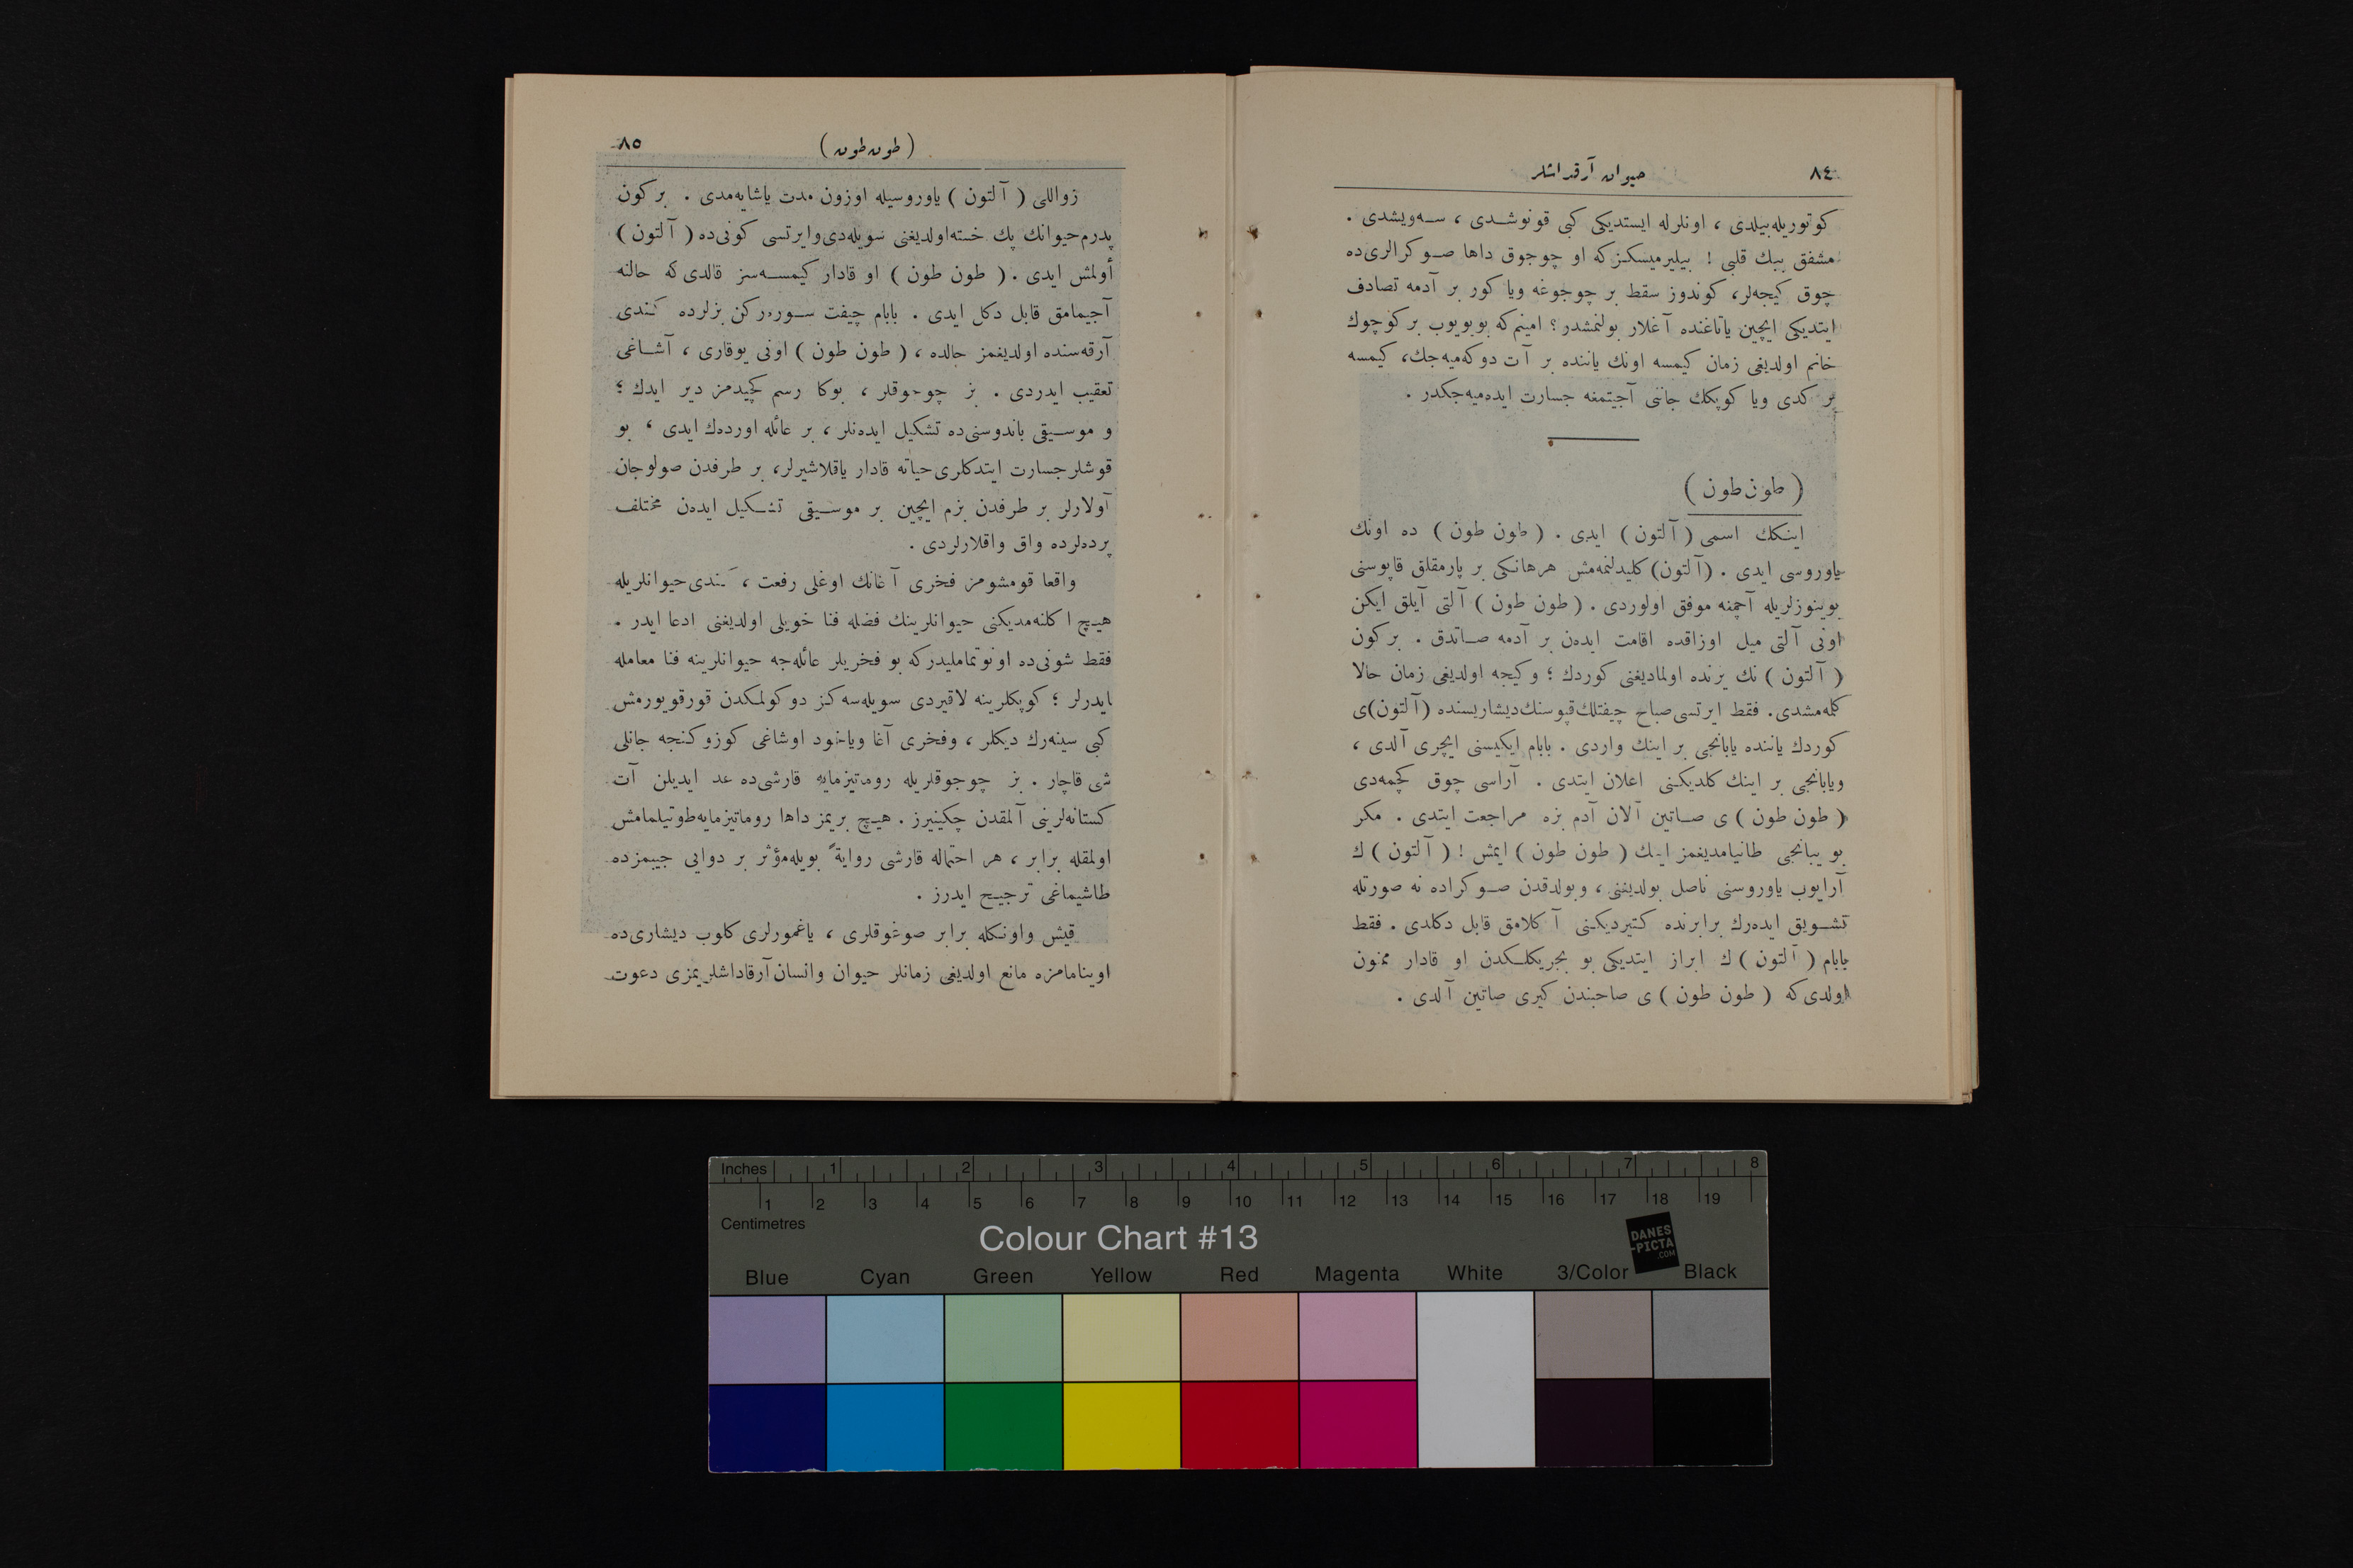 ٨٤
حیوان آرقداشلر
كوتوریله‌بیلدی ، اونلرله ایستدیكی كبی قونوشدی ، سه‌ویشدی .
مشفق ببك قلبی ! بیلیرمیسكزكه او چوجوق داها صوكرالری‌ده
چوق كیجه‌لر، كوندوز سقط بر چوجوغه ویا كور بر آدمه تصادف
ایتدیكی ایچین یاتاغنده آغلار بولنمشدر؟ امینم‌كه بویویوب بر كوچوك
خانم اولدیغی زمان كیمسه اونك یاننده بر آت دوكه‌میه‌جك، كیمسه
بر كدی ویا كوپكك جاننی آجیتمغه جسارت ایده‌میه‌جكدر .
( طون طون )
اینكك اسمی ( آلتون ) ایدی . ( طون طون ) ده اونك
یاوروسی ایدی . (آلتون) كلیدلنمه‌مش هرهانكی بر پارمقلق قاپوسنی
بوینوزلریله آچمنه موفق اولوردی . ( طون طون ) آلتی آیلق ایكن
اونی آلتی میل اوزاقده اقامت ایده‌ن بر آدمه صاتدق . بركون
( آلتون ) نك یرنده اولمادیغنی كوردك ؛ وكیجه اولدیغی زمان حالا
كلمه‌مشدی. فقط ایرتسی صباح چیفتلك قپوسنك دیشاریسنده (آلتون)ی
كوردك یاننده یابانجی بر اینك واردی . بابام ایكیسنی ایچری آلدی ،
ویابانجی بر اینك كلدیكنی اعلان ایتدی . آراسی چوق كچمه‌دی
( طون طون ) ی صاتین آلان آدم بزه مراجعت ایتدی . مكر
بو یبانجی طانیامدیغمز اینك ( طون طون ) ایمش ! ( آلتون ) ك
آرایوب یاوروسنی ناصل بولدیغنی ، وبولدقدن صوكراده نه صورتله
تشویق ایده‌رك برابرنده كتیردیكنی آكلامق قابل دكلدی . فقط
بابام ( آلتون ) ك ابراز ایتدیكی بو بجریكلكدن او قادار ممنون
اولدی‌كه ( طون طون ) ی صاحبندن كیری صاتین آلدی .
( طون طون )
٨٥
زواللی ( آلتون ) یاوروسیله اوزون مدت یاشایه‌مدی . بركون
پدرم حیوانك پك خسته‌اولدیغنی سویله‌دی وایرتسی كونی‌ده ( آلتون )
أولمش ایدی . ( طون طون ) او قادار كیمسه‌سز قالدی‌كه حالنه
آجیمامق قابل دكل ایدی . بابام چیفت سوره‌ركن بزلرده كندی
آرقه‌سنده اولدیغمز حالده ، ( طون طون ) اونی یوقاری ، آشاغی
تعقیب ایدردی . بز چوجوقلر ، بوكا رسم كچیدمز دیر ایدك ؛
و موسیقی باندوسنی‌ده تشكیل ایده‌نلر ، بر عائله اورده‌ك ایدی ؛ بو
قوشلر جسارت ایتدكلری حیاته قادار یاقلاشیرلر، بر طرفدن صولوجان
آولارلر بر طرفدن بزم ایچین بر موسیقی تشكیل ایده‌ن مختلف
پرده‌لرده واق واقلارلردی .
واقعا قومشومز فخری آغانك اوغلی رفعت ، كندی حیوانلریله
هیچ اكلنه‌مدیكنی حیوانلرینك فضله فنا خویلی اولدیغنی ادعا ایدر .
فقط شونی‌ده اونوتماملیدركه بو فخریلر عائله‌جه حیوانلرینه فنا معامله
ایدرلر ؛ كوپكلرینه لاقیردی سویله‌سه‌كز دوكولمكدن قورقویورمش
كبی سینه‌رك دیكلر ، وفخری آغا ویاخود اوشاغی كوزوكنجه جانلی
شی قاچار . بز چوجوقلریله روماتیزمایه قارشی‌ده عد ایدیلن آت
كستانه‌لرینی آلمقدن چكینیرز . هیچ بریمز داها روماتیزمایه‌طوتیلمامش
اولمقله برابر ، هر احتماله قارشی روایةً بویله‌مؤثر بر دوایی جیبمزده
طاشیماغی ترجیح ایدرز .
قیش واونكله برابر صوغوقلری ، یاغمورلری كلوب دیشاری‌ده
اوینامامزه مانع اولدیغی زمانلر حیوان وانسان آرقاداشلریمزی دعوت
Inches 1 2 3 4 5 6 7 8
1 2 3 4 5 6 7 8 9 10 11 12 13 14 15 16 17 18 19
Centimetres
Colour Chart #13
DANES
-PICTA
.COM
Blue Cyan Green Yellow Red Magenta White 3/Color Black